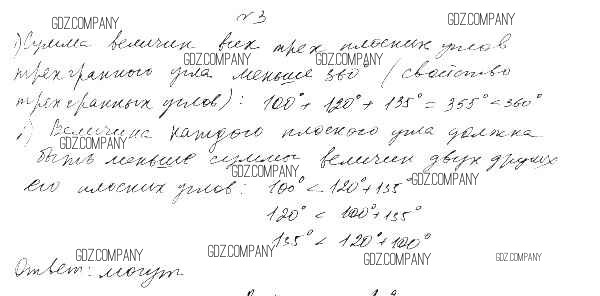 №3
GDZ.COMPANY GDZ.COMPANY
1) Сумма величин всех трех плоских углов
GDZ.COMPANY GDZ.COMPANY
трехгранного угла меньше 360° (свойство
трехгранных углов): 100° + 120° + 135° = 355° < 360°
2) Величина каждого плоского угла должна
GDZ.COMPANY
быть меньше суммы величин двух других
GDZ.COMPANY GDZ.COMPANY
его плоских углов: 100° < 120° + 135°
120° < 100° + 135°
135° < 120° + 100°
GDZ.COMPANY GDZ.COMPANY GDZ.COMPANY GDZ.COMPANY
Ответ: могут